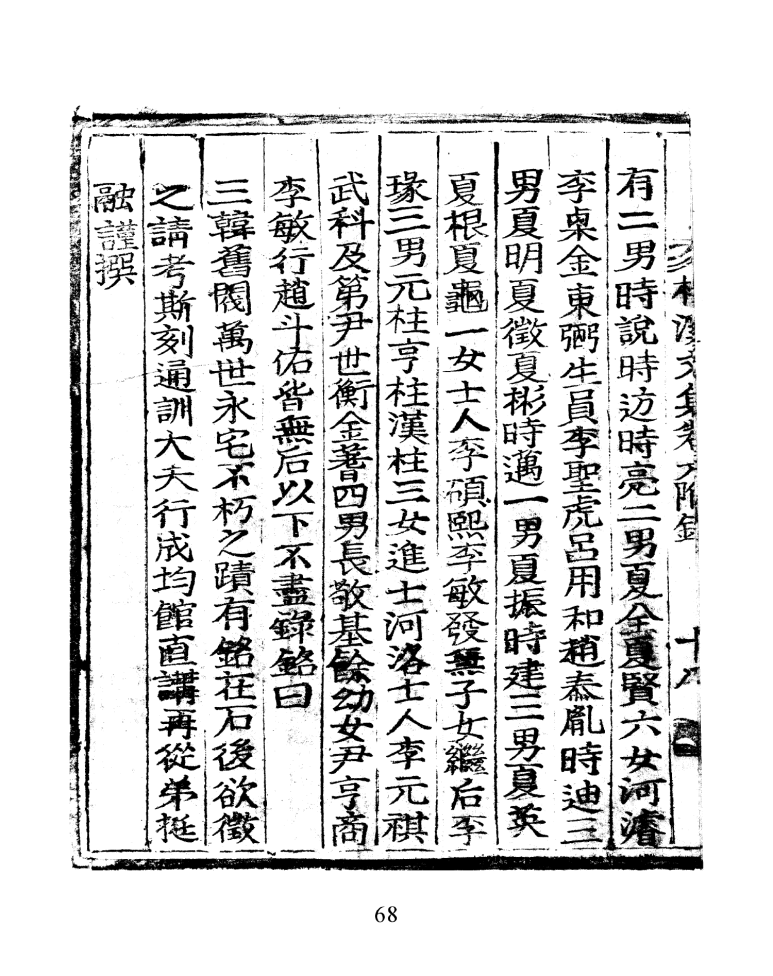 溪文集卷六附錄 十八
有二男時說時迈時亮二男夏全夏賢六女河濬
李㮚金東弼生員李聖虎呂用和趙泰胤時迪三
男夏明夏徵夏彬時邁一男夏振時建三男夏英
夏根夏龜一女士人李碩熙李敏發無子女繼后李
瑑三男元柱亨柱漢柱三女進士河洛士人李元祺
武科及第尹世衡金蓍四男長敬基餘幼女尹亨商
李敏行趙斗佑皆無后以下不盡錄銘曰
三韓舊閥萬世永宅不朽之蹟有銘在石後欲徵
之請考斯刻通訓大夫行成均館直講再從弟挺
融謹撰
68